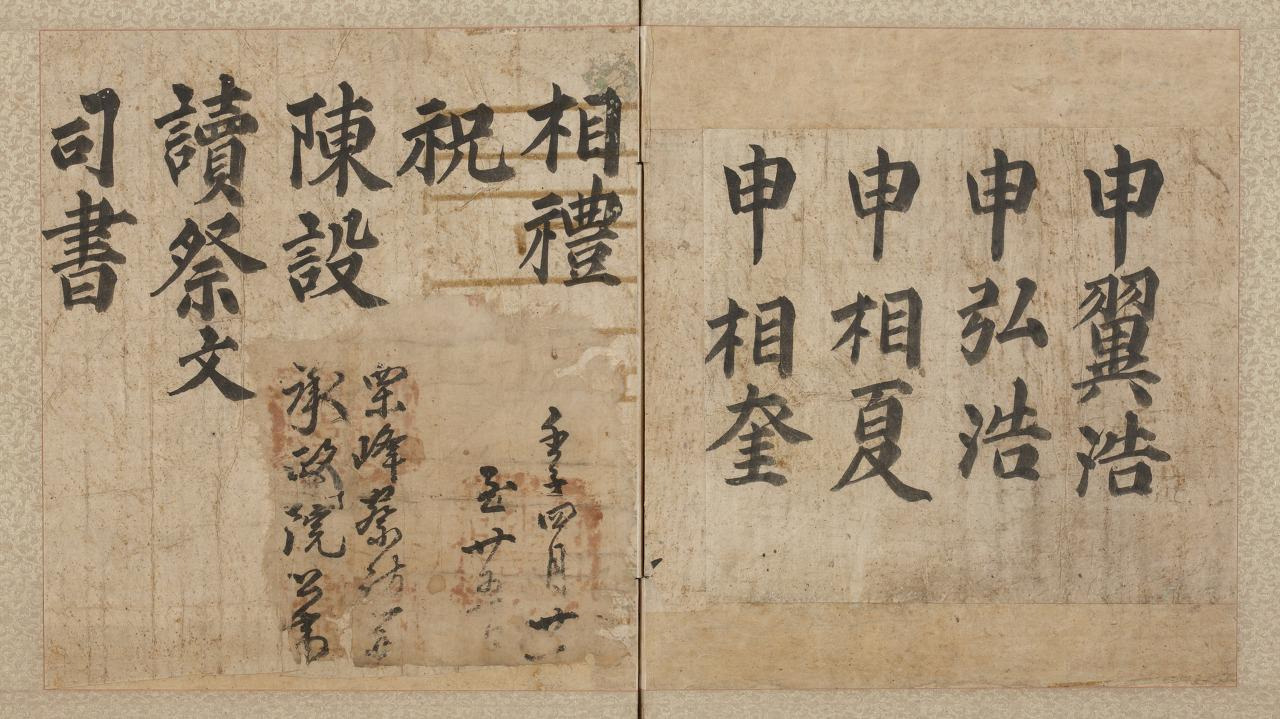 申翼浩
申弘浩
申相夏
申相奎
相禮
祝
陳設
讀祭文
司書
壬子四月廿
至廿五
栗峰
承政院